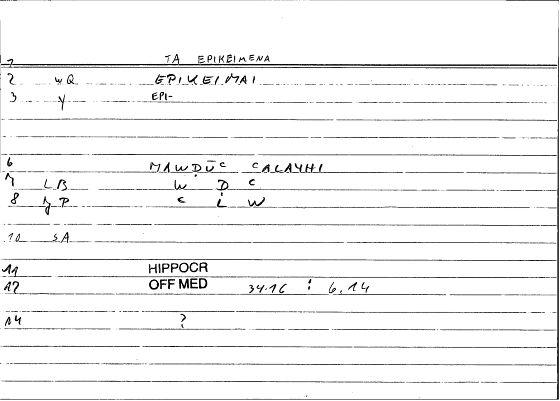 1 TA EPIKEIMENA
2 wQ EPIKEIMAI
3 y EPI-
6 MAWḌŪC CALAYHI
7 LB W Ḍ C
8 MP C L W
10 SA
11 HIPPOCR
12 OFF MED 34.16 : 6.14
14 ?